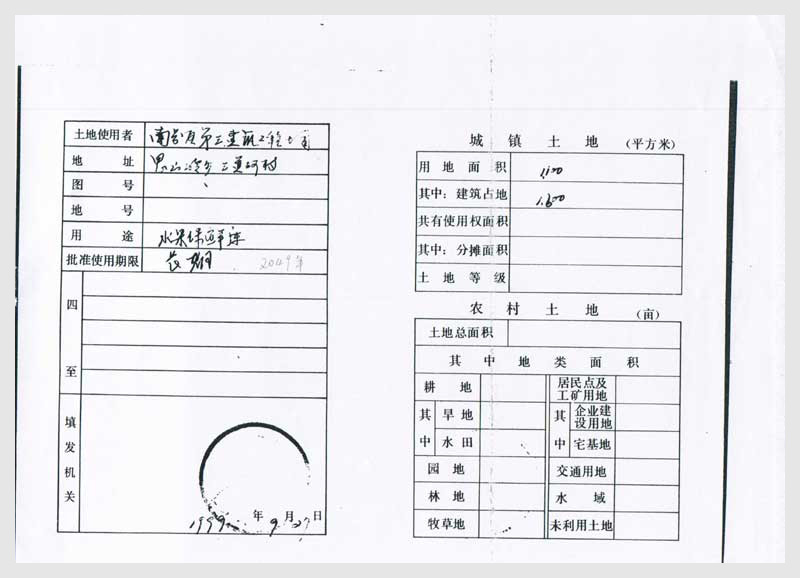 土地使用者
地址
图号
地号
用途 水果保鲜库
批准使用期限 2049年
四至
填发机关
1999年9月27日
城镇土地 (平方米)
用地面积
其中：建筑占地
共有使用权面积
其中：分摊面积
土地等级
农村土地 (亩)
土地总面积
其中地类面积
耕地 居民点及工矿用地
其中 旱地 其中 企业建设用地
水田 宅基地
园地 交通用地
林地 水域
牧草地 未利用土地